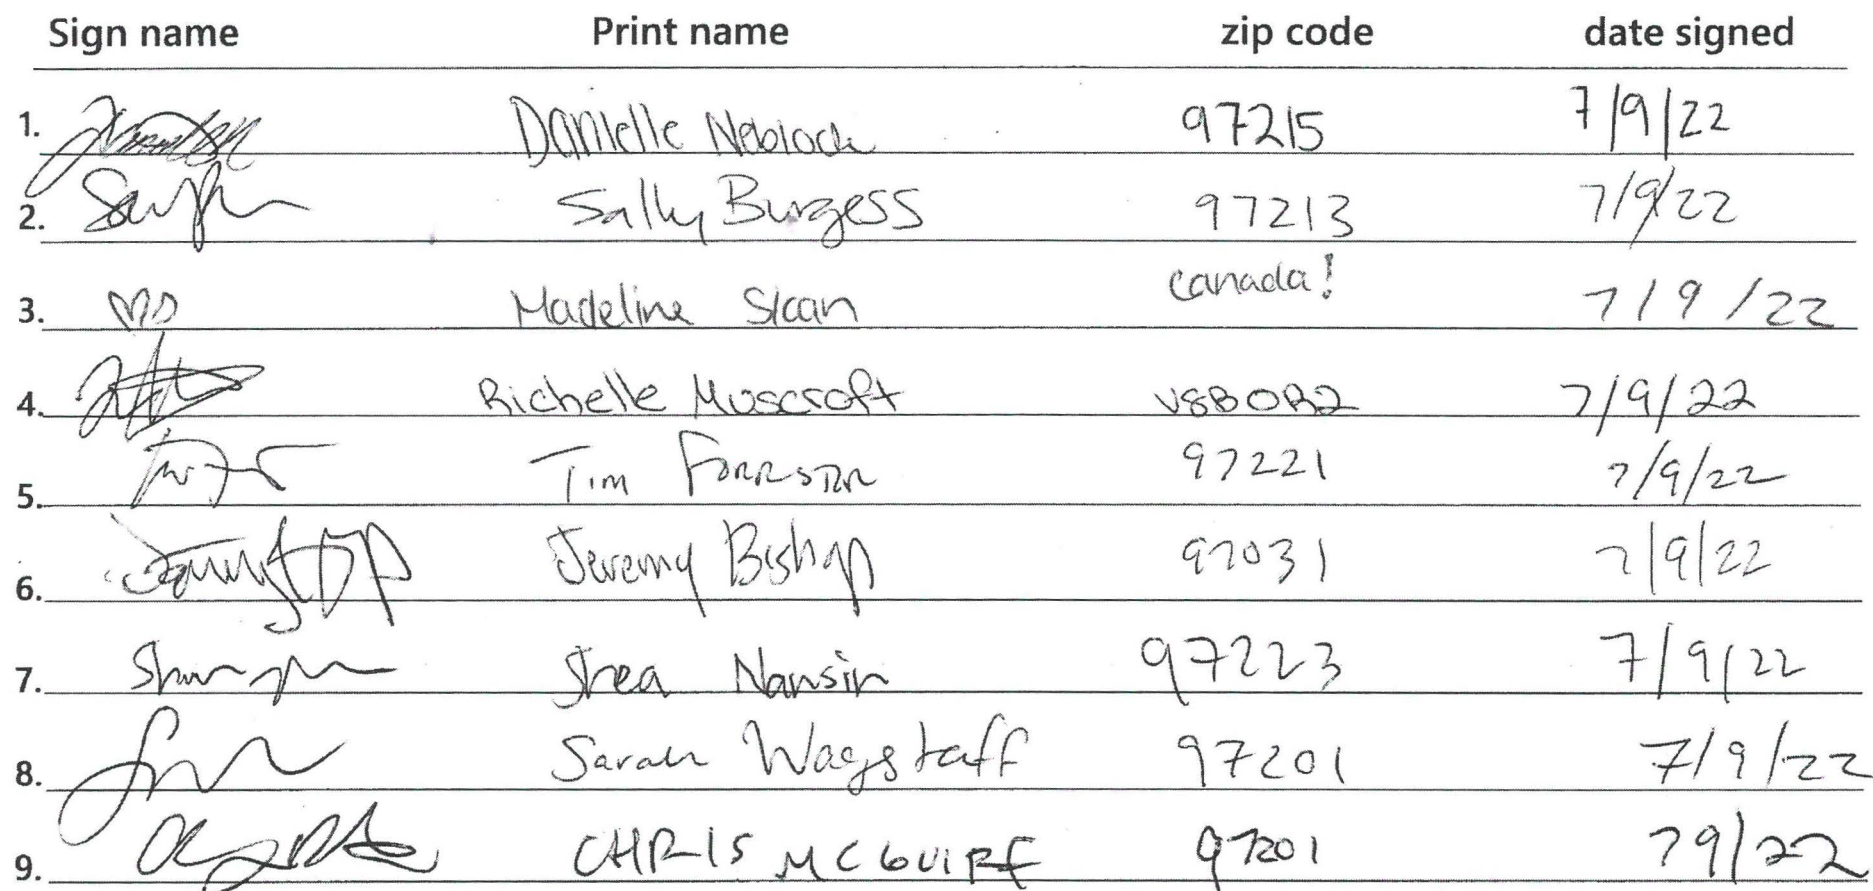 Sign name Print name zip code date signed
1. Danielle 97215 7/9/22
2. Sally Burgess 97213 7/9/22
3. Madeline Sloan canada! 7/9/22
4. Richelle Muscroft V8B0R2 7/9/22
5. Tim 97221 7/9/22
6. Jeremy Bishop 97031 7/9/22
7. 97223 7/9/22
8. Sarah Wagstaff 97201 7/9/22
9. CHRIS MCGUIRE 97201 79/22